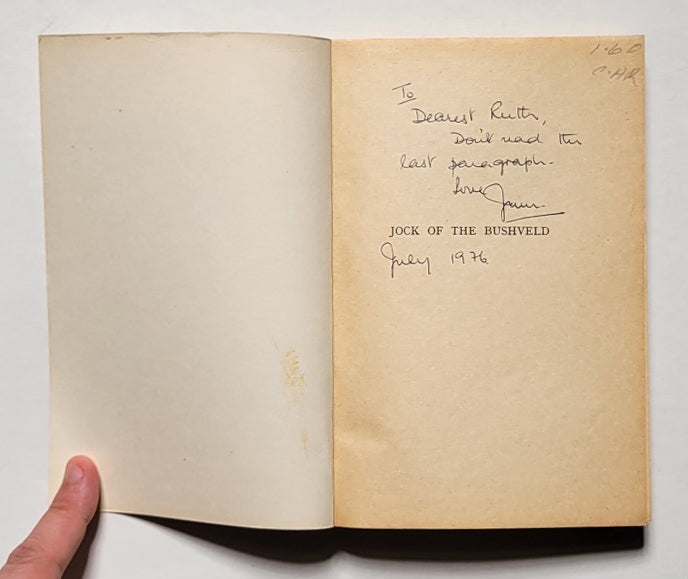 1.60
C·AR
To
Dearest Ruth,
Don't read the
last paragraph.
Love
JOCK OF THE BUSHVELD
July 1976